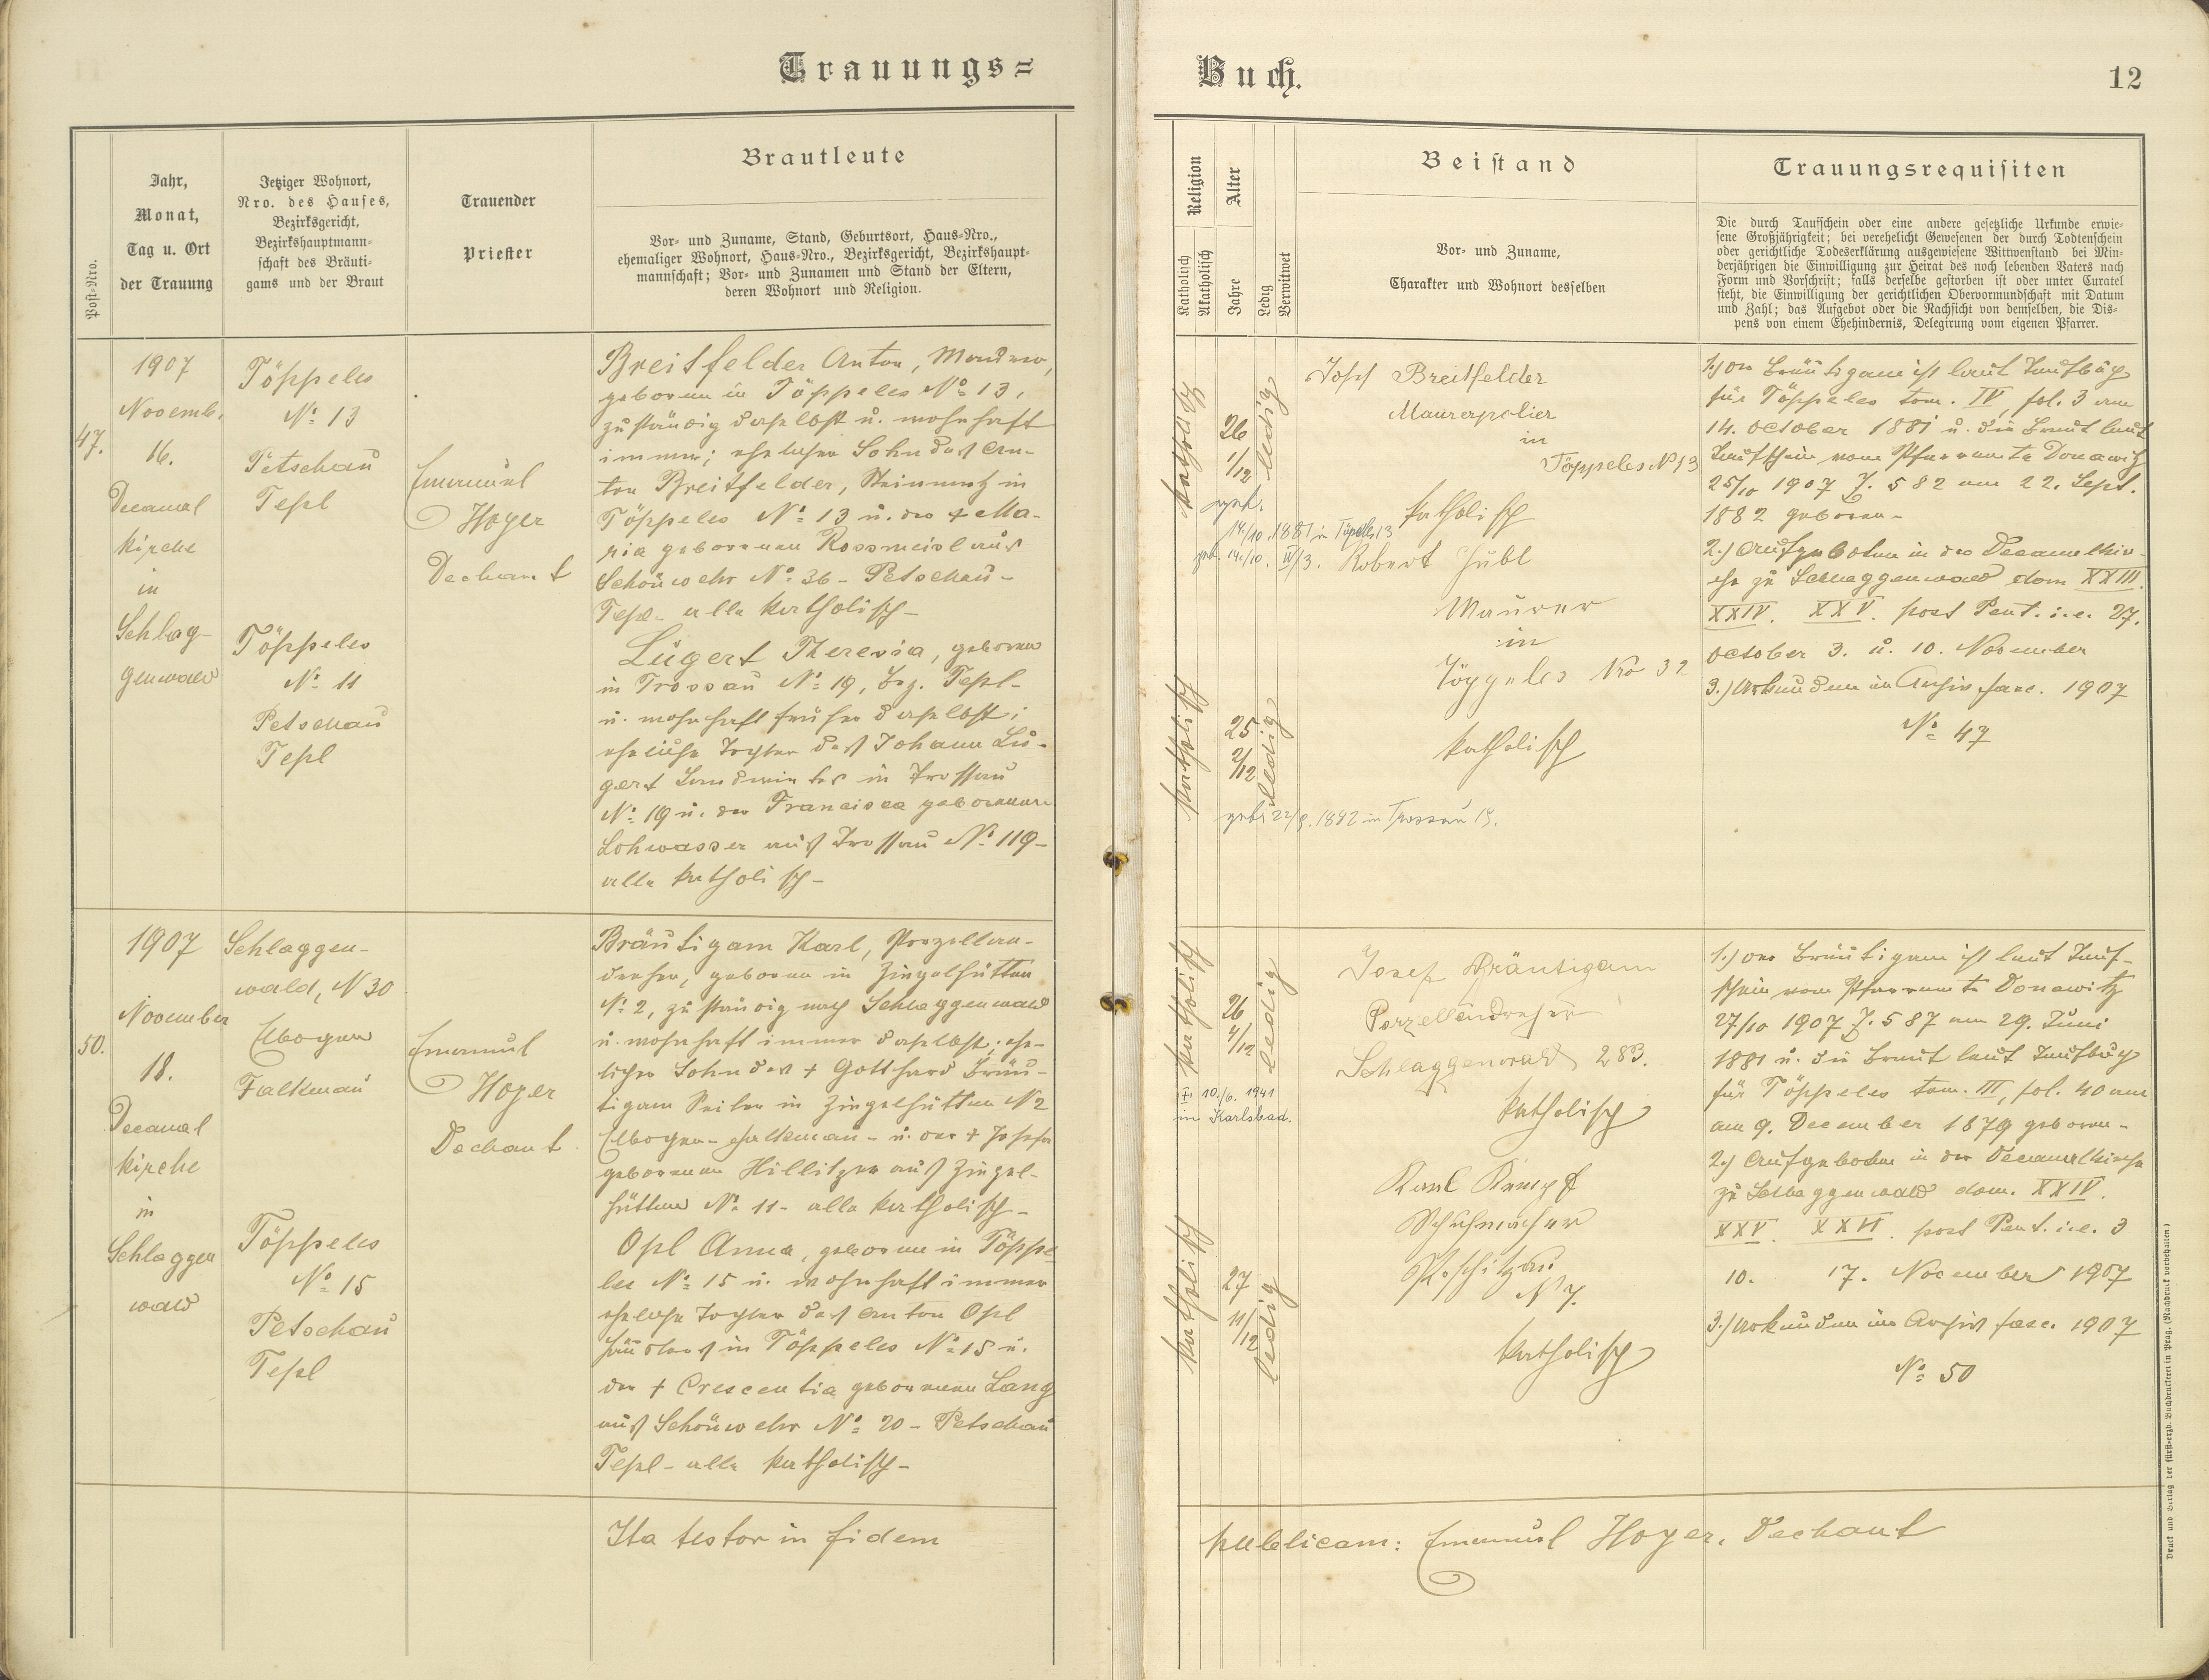 Trauungs=
Post=Nro.
Jahr,
Monat,
Tag u. Ort
der Trauung
Jetziger Wohnort,
Nro. des Hauses,
Bezirksgericht,
Bezirkshauptmann=
schaft des Bräuti=
gams und der Braut
Trauender
Priester
Brautleute
Vor= und Zuname, Stand, Geburtsort, Haus=Nro.,
ehemaliger Wohnort, Haus=Nro., Bezirksgericht, Bezirkshaupt=
mannschaft; Vor= und Zunamen und Stand der Eltern,
deren Wohnort und Religion.
47.
1907
Novemb.
16.
Decanal
kirche
in
Schlag-
genwald
Töppeles
No 13
Petschau
Tepl
Töppeles
No 11
Petschau
Tepl
Emanuel
Hoyer
Dechant
Breitfelder Anton, Maurer,
geboren in Töppeles No 13,
zuständig daselbst u. wohnhaft
immer; ehelicher Sohn des An-
ton Breitfelder, Steinmetz in
Töppeles No 13 u. der + Ma-
ria geborenen Rossmeisl aus
Schönwehr No 36 - Petschau -
Tepl - alle katholisch -
Lugert Theresia, geboren
in Trossau No 19, Bez. Tepl -
u. wohnhaft früher daselbst;
eheliche Tochter des Johann Lu-
gert Landwirtes in Trossau
No 19 u. der Francisca geborenen
Lohwasser aus Trossau No 119 -
alle katholisch -
50.
1907
November
18.
Decanal
kirche
in
Schlaggen
wald
Schlaggen-
wald, N 30
Elbogen
Falkenau
Töppeles
No 15
Petschau
Tepl
Emanuel
Hoyer
Dechant
Bräutigam Karl, Porzellan-
dreher, geboren in Ziegelhütten
No 2, zuständig nach Schlaggenwald
u. wohnhaft immer daselbst; ehe-
licher Sohn des + Gotthard Bräu-
tigam Seiler in Ziegelhütten N 2
Elbogen - Falkenau - u. der + Josefa
geborenen Hillitzer aus Ziegel-
hütten No 11 - alle katholisch -
Opl Anna, geboren in Töppe
les No 15 u. wohnhaft immer
eheliche Tochter des Anton Opl
Häuslers in Töppeles No 15 u.
der + Crescentia geborenen Lang
aus Schönwehr No 20 - Petschau
Tepl - alle katholisch -
Ita testor in fidem
Buch.
12
Religion
Katholisch
Akatholisch
Alter
Jahre
Ledig
Verwitwet
Beistand
Vor= und Zuname,
Charakter und Wohnort desselben
Trauungsrequisiten
Die durch Taufschein oder eine andere gesetzliche Urkunde erwie=
sene Großjährigkeit; bei verehelicht Gewesenen der durch Todtenschein
oder gerichtliche Todeserklärung ausgewiesene Wittwenstand bei Min=
derjährigen die Einwilligung zur Heirat des noch lebenden Vaters nach
Form und Vorschrift; falls derselbe gestorben ist oder unter Curatel
steht, die Einwilligung der gerichtlichen Obervormundschaft mit Datum
und Zahl; das Aufgebot oder die Nachsicht von demselben, die Dis=
pens von einem Ehehindernis, Delegirung vom eigenen Pfarrer.
katholisch
26
1/12
ledig
14./10. 1881 in Töppeles 13
geb. 14./10. IV/3.
katholisch
25.
2/12
ledig
geb. 22/9. 1882 in Trossau 19.
Josef Breitfelder
Maurerpolier
in
Töppeles N 13
katholisch
Robert Hubl
Maurer
in
Töppeles Nro 32
katholisch
1.) Der Bräutigam ist laut Taufbuch
für Töppeles tom. IV, fol. 3 am
14. October 1881 u. die Braut laut
Taufschein vom Pfarramte Donawitz
25/10 1907 Z. 582 am 22. Sept.
1882 geboren -
2.) Aufgeboten in der Decanalkir-
che zu Schlaggenwald dom XXIII.
XXIV. XXV. post Pent. i.e. 27.
October 3. u. 10. November
3.) Urkunden im Archiv fasc. 1907
No 47
katholisch
26
4/12
ledig
+ 10./6. 1941
in Karlsbad.
katholisch
27
11/12
ledig
Josef Bräutigam
Porzellandreher
Schlaggenwald 283.
katholisch
Karl Kempf
Schuhmacher
N 7.
katholisch
1.) Der Bräutigam ist laut Tauf-
schein vom Pfarramte Donawitz
27/10 1907 Z. 587 am 29. Juni
1881 u. die Braut laut Taufbuch
für Töppeles tom. III, fol. 40 am
am 9. December 1879 geboren -
2.) Aufgeboten in der Decanalkirche
zu Schlaggenwald dom. XXIV.
XXV. XXVI. post Pent. i.e. 3
10. 17. November 1907
3.) Urkunden im Archiv fasc. 1907
No 50
publicam: Emanuel Hoyer, Dechant
Druck und Verlag der fürst=erzb. Buchdruckerei in Prag. (Nachdruck vorbehalten.)